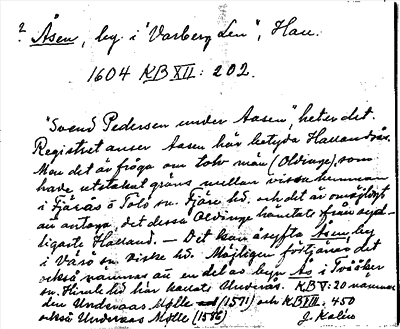 ? Åsen, by i "Varberg Len", Hall.
1604 KB XII: 202.
"Svend Pedersen under Aasen", heter det.
Registret anser Aasen här betyda Hallandsås.
Men det är fråga om tolv män (Oldinge), som
hade utstakat gräns mellan vissa hemman
i Fjärås o Tölö sn. Fjäre hd. och det är omöjligt
att antaga, att dessa Oldinge hämtats från syd-
ligaste Halland. — Det kan åsyfta Åsen, by
i Värö sn. Viske hd. Möjligen förtjänar det
också nämnas att en del av byn Ås i Tvååker
sn. Himle hd har kallats Underås. KB V: 20 nämner
den Underaas Mølle (1571) och KB VIII: 450
också Underaas Mølle (1586) J. Kalén